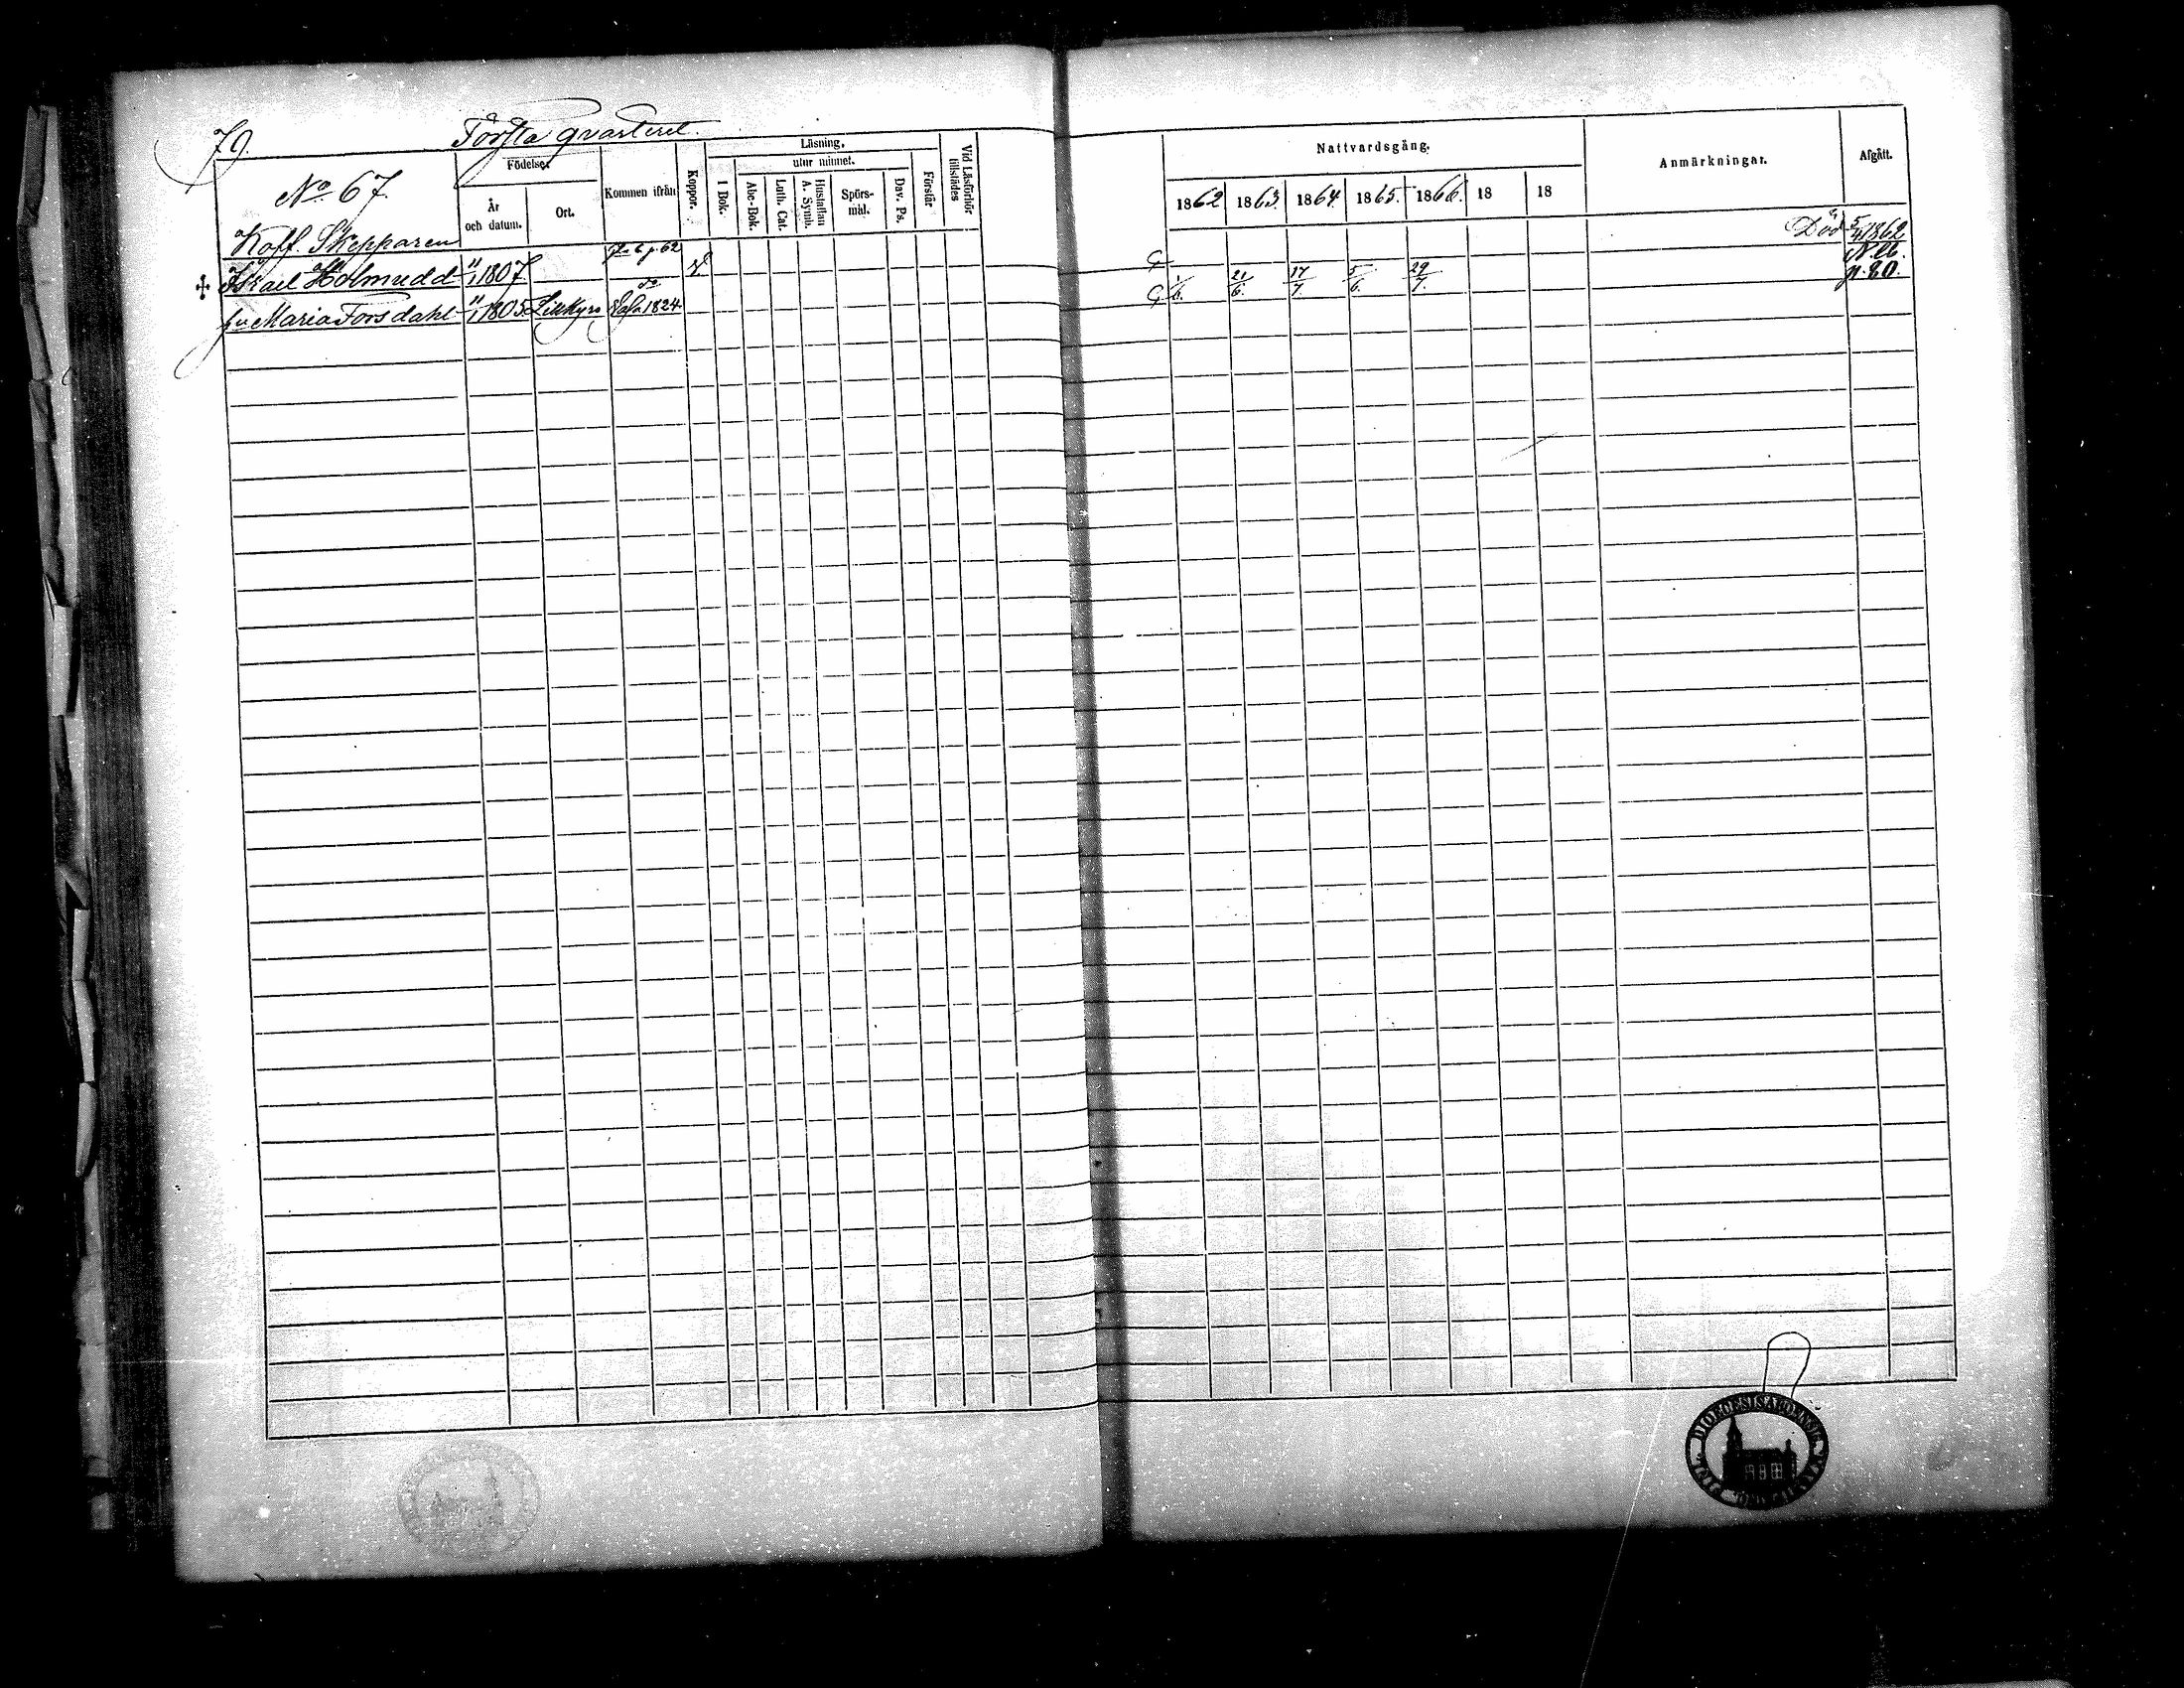 79.
Första qvarteret.
No 67.
Födelse.
År och datum.
Ort.
Kommen ifrån
Koppor.
Läsning.
utur minnet.
I Bok.
Abc-Bok.
Luth. Cat.
Hustaflan A. Symb.
Spörsmål.
Dav. Ps.
Förstår
Vid Läsförhör tillstädes
Nattvardsgång.
1862 1863. 1864. 1865. 1866. 18 18
Anmärkningar.
Afgått.
Koff. Skepparen
Död 5/ 1862
Israel Holmudd 1807
Maria Forsdahl 1805 Lillkyro 1824 1/6. 21/6. 17/7. 5/6. 29/7. p. 80.
DIOECESIS ABOENSIS